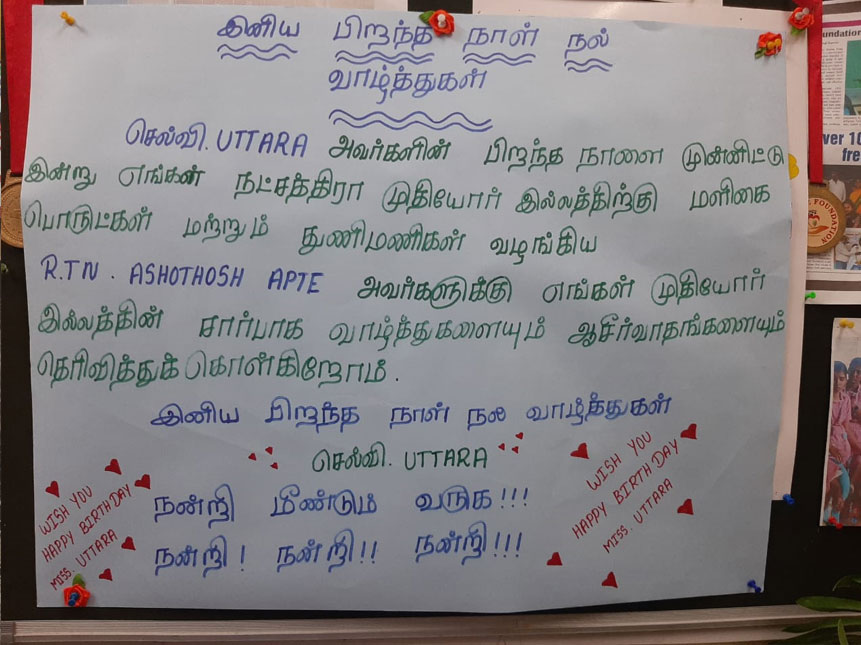 இனிய பிறந்த நாள் நல்
வாழ்த்துகள்
செல்வி. UTTARA அவர்களின் பிறந்த நாளை முன்னிட்டு
இன்று எங்கள் நட்சத்திரா முதியோர் இல்லத்திற்கு மளிகை
பொருட்கள் மற்றும் துணிமணிகள் வழங்கிய
R.T.N. ASHOTHOSH APTE அவர்களுக்கு எங்கள் முதியோர்
இல்லத்தின் சார்பாக வாழ்த்துகளையும் ஆசீர்வாதங்களையும்
தெரிவித்துக் கொள்கிறோம்.
இனிய பிறந்த நாள் நல வாழ்த்துகள்
செல்வி. UTTARA
நன்றி மீண்டும் வருக!!!
நன்றி! நன்றி!! நன்றி!!!
WISH YOU
HAPPY BIRTHDAY
MISS. UTTARA
WISH YOU
HAPPY BIRTHDAY
MISS. UTTARA
FOUNDATION